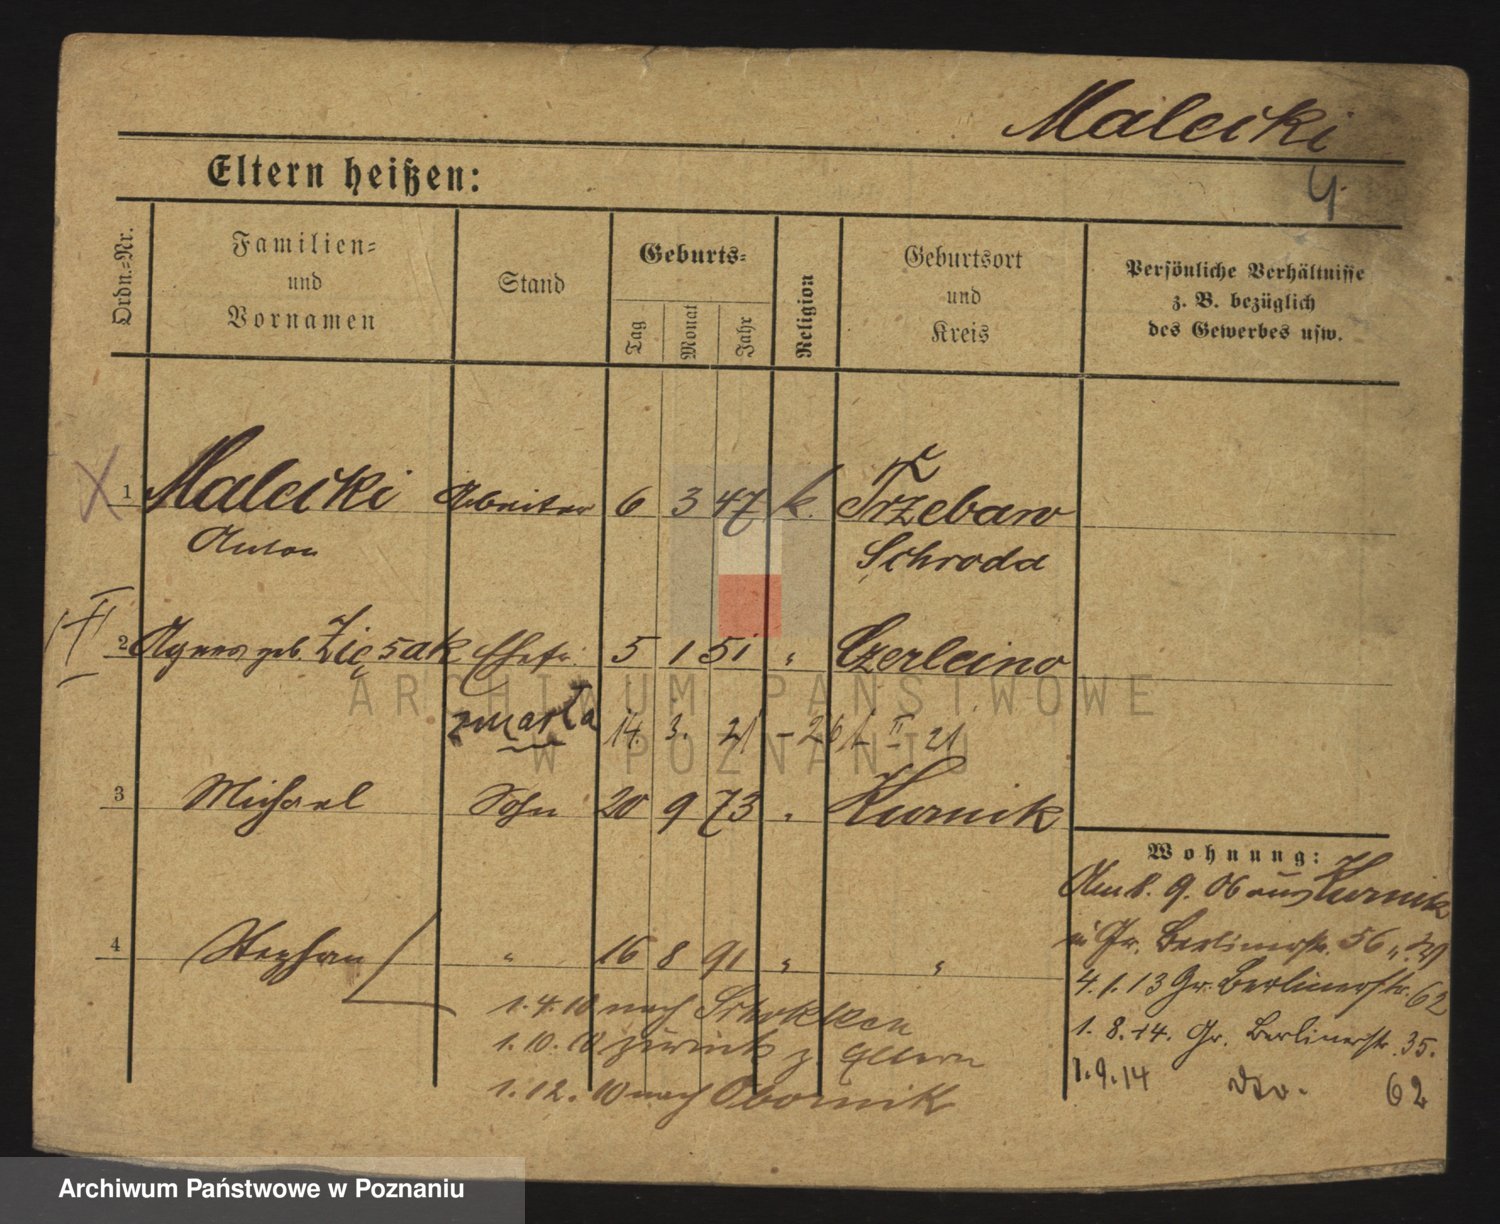 Malecki
Eltern heißen:
Ordn.-Nr.
Familien-
und
Vornamen
Stand
Geburts-
Tag
Monat
Jahr
Religion
Geburtsort
und
Kreis
Persönliche Verhältnisse
z. B. bezüglich
des Gewerbes usw.
1 Malecki Arbeiter 6 3 47 k. Trzebaw
Anton Schroda
2 Agnes geb. Zięsak Ehefr. 5 1 51 " Czerleino
zmarła 14. 3. 21 - 26 II 21
3 Michael Sohn 20 9 73 " Kurnik
4 Stephan " 16 8 91 " "
1.4.10 nach
1.10.10 zurück z. Eltern
1.12.10 nach Obornik
Wohnung:
Am 8. 9. 06 aus Kurnik
Gr. Berlinerstr. 56
4.1.13 Gr. Berlinerstr. 62
1. 8. 14. Gr. Berlinerstr. 35.
1.9.14 dto. 62
ARCHIWUM PAŃSTWOWE
W POZNANIU
Archiwum Państwowe w Poznaniu